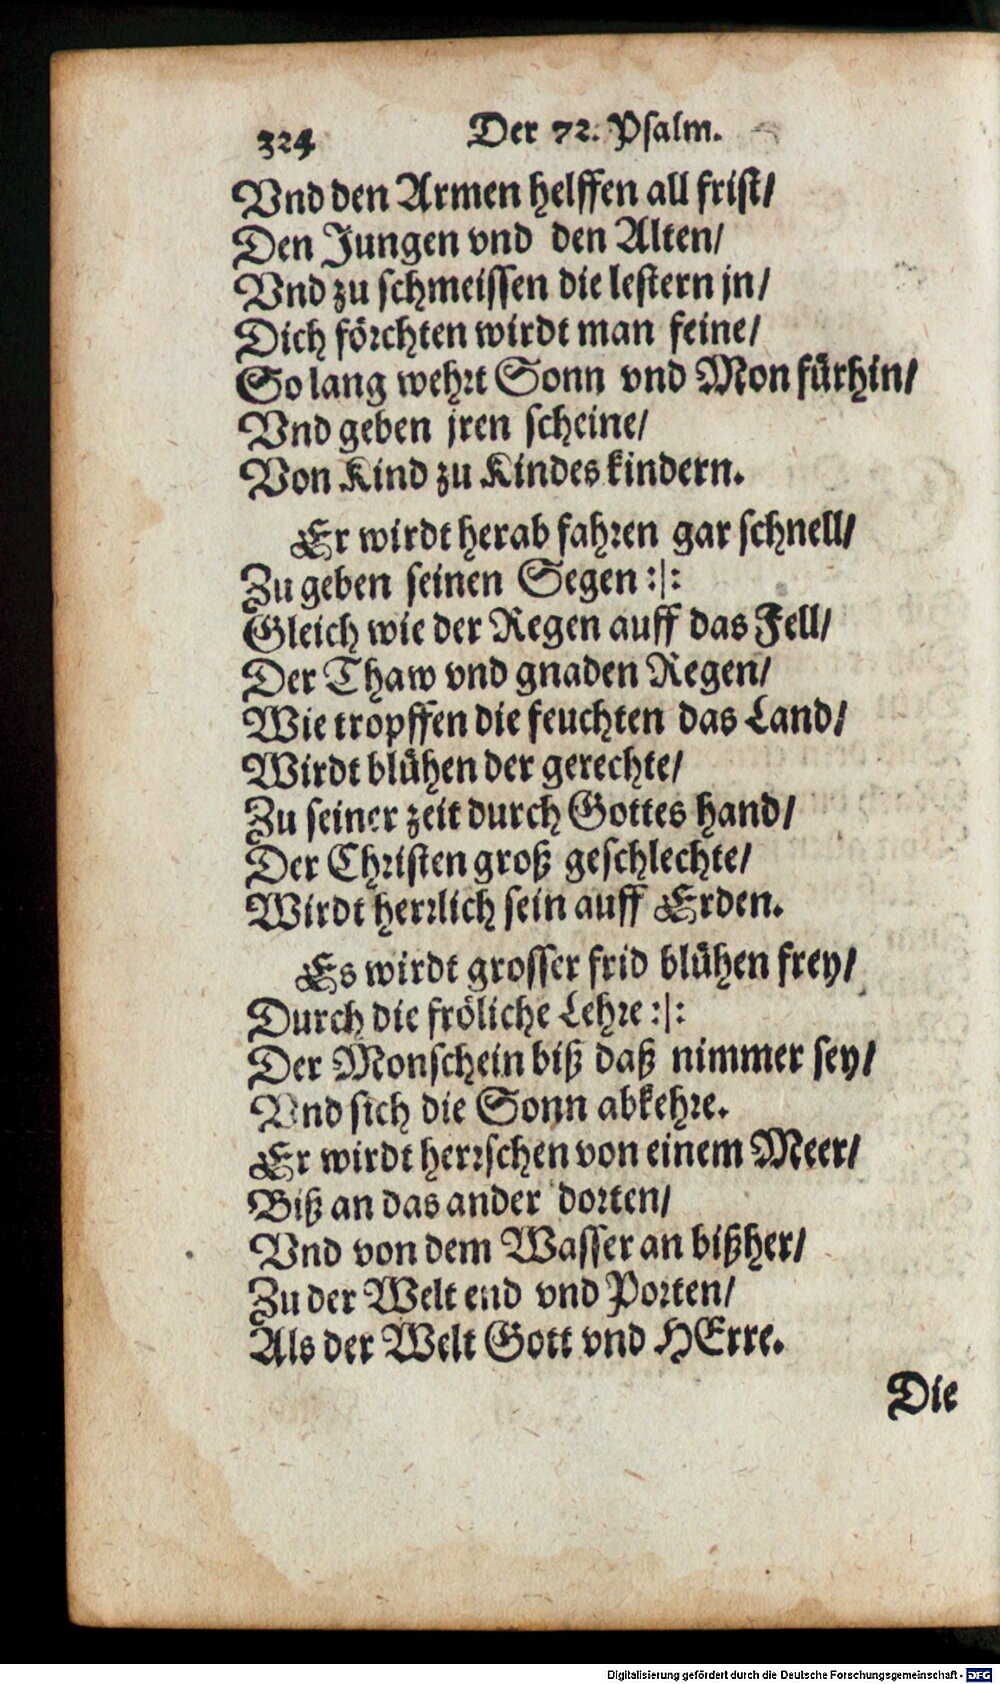 324 Der 72. Psalm.
Vnd den Armen helffen all frist/
Den Jungen vnd den Alten/
Vnd zu schmeissen die lestern jn/
Dich förchten wirdt man feine/
So lang wehrt Sonn vnd Mon fürhin/
Vnd geben jren scheine/
Von Kind zu Kindes kindern.
Er wirdt herab fahren gar schnell/
Zu geben seinen Segen :|:
Gleich wie der Regen auff das Fell/
Der Thaw vnd gnaden Regen/
Wie tropffen die feuchten das Land/
Wirdt blühen der gerechte/
Zu seiner zeit durch Gottes hand/
Der Christen groß geschlechte/
Wirdt herrlich sein auff Erden.
Es wirdt grosser frid blühen frey/
Durch die fröliche Lehre :|:
Der Monschein biß daß nimmer sey/
Vnd sich die Sonn abkehre.
Er wirdt herrschen von einem Meer/
Biß an das ander dorten/
Vnd von dem Wasser an bißher/
Zu der Welt end vnd Porten/
Als der Welt Gott vnd HErre.
Die
Digitalisierung gefördert durch die Deutsche Forschungsgemeinschaft - DFG